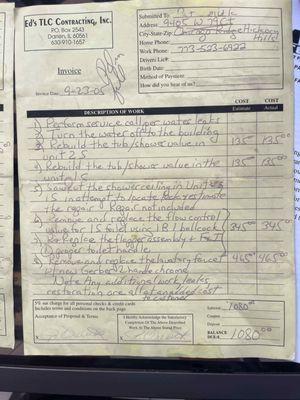 Ed's TLC Contracting, Inc.
P.O. Box 2543
Darien, IL 60561
630-910-1657
Submitted To:
9405 W 79 CT
City-State-Zip: Hickory Hills
Home Phone:
Work Phone: 773-503-6922
Drivers Lic#
Birth Date
Method of Payment:
How did you hear of us?
Invoice
Invoice Date: 9-23-05
DESCRIPTION OF WORK
COST Estimate
COST Actual
1) Perform service call per water leaks
2) Turn the water off to the building
3) Rebuild the tub/shower valve in 135 135 00
unit 2 S.
4) Rebuild the tub/shower valve in the 135 135 00
unit 1 S
5) Sawcut the shower ceiling in Unit
1 S in attempt to locate leak, estimate
the repair. Repair not included
6) Remove and replace the flow control
valve for 1S toilet using 1 B1 ballcock 345 345 00
7) Replace the flapper assembly + Fe I
toilet handle
Remove and replace the laundry faucet 465 465 00
w/ new Gerber 2 handle chrome
Note Any additional work, leaks,
restoration are all at an added cost
to customer
5% our charge for all personal checks & credit cards
Includes terms and conditions on the back page.
Acceptance of Proposal & Terms
I Hereby Acknowledge the Satisfactory
Completion Of The Above Described
Work At The Above Stated Price
X
X
Subtotal 1080 00
Coupon
Deposit
BALANCE DUE 1080 00